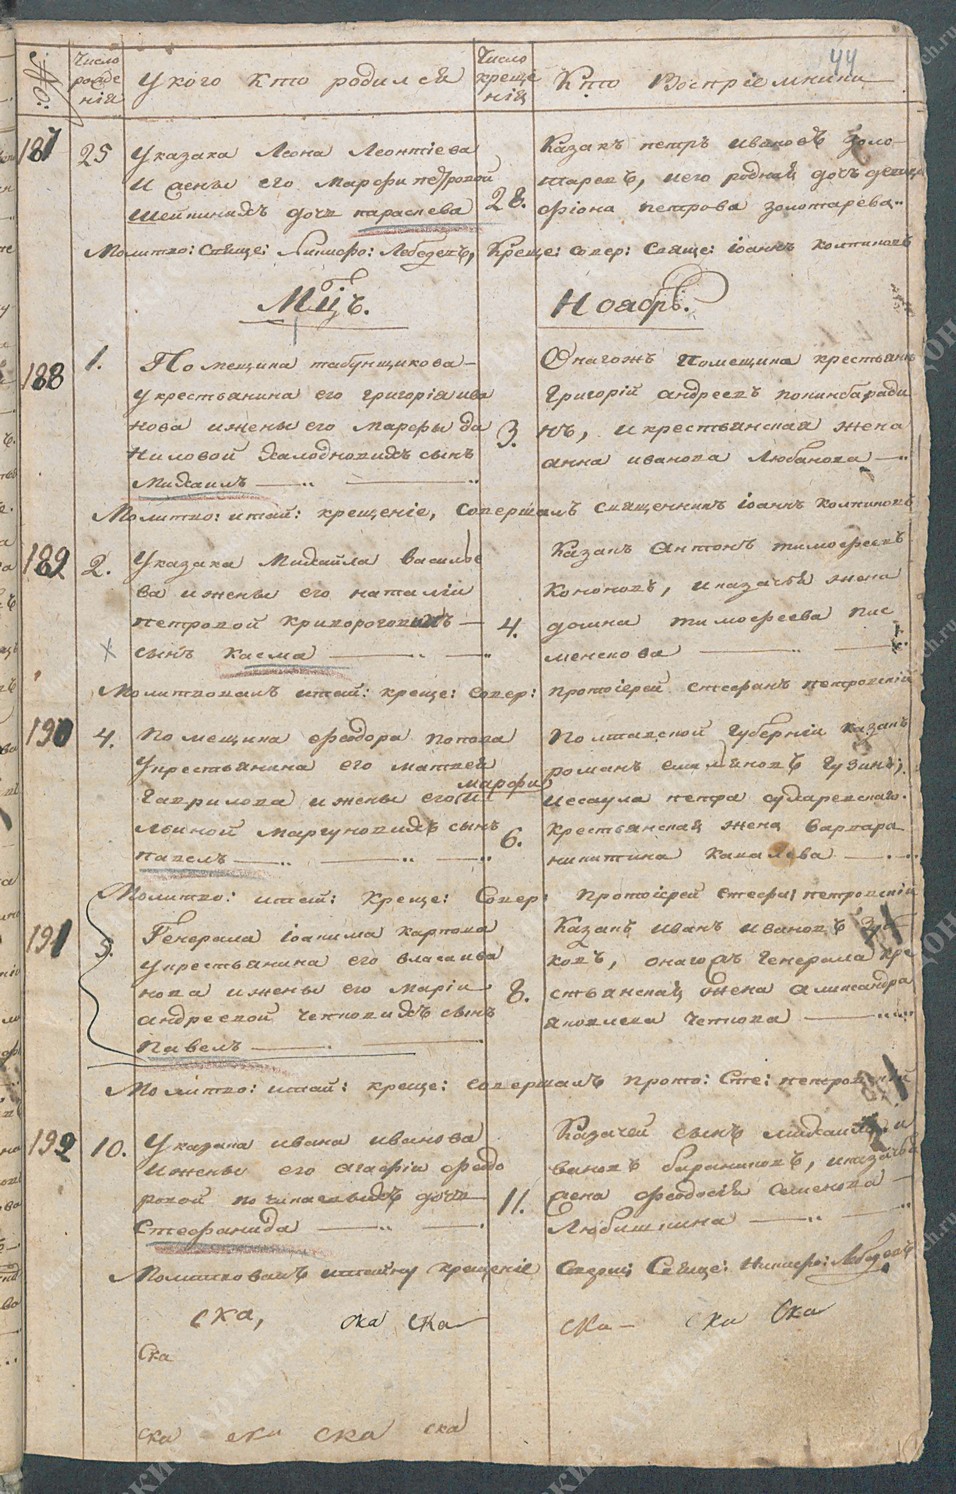 44
№: Число рожде нія У кого кто родился Число креще нія Кто Воспріемники
187 25 У казака Леона Леонтіева
и жены его Марфы петровой
Шейкиныхъ дочь параскева 28.
Казакъ петръ Ивановъ Золо-
таревъ, и его родная дочь девица
фіона петрова золотарева
Молитво: Свяще: Никифо: Лебедевъ, Креще: совер: Свяще: іоаннъ
Мцъ. Ноябрь.
188 1. Помещика табунщикова
у крестьянина его григорія ива
нова и жены его Марфы да
ниловой Холодновыхъ сынъ
Михаилъ 3.
Онагожъ Помещика крестьян
Григорій андреевъ
нъ, и крестьянская жена
анна иванова Любанова
Молитво: и таи: крещеніе, совершалъ священникъ іоаннъ
189 2. У казака Михайла василье
ва и жены его наталіи
петровой криворотовыхъ
сынъ касма 4.
Казакъ Антонъ тимофеевъ
Кононовъ, и казачья жена
домна тимофеева пис
менскова
Молитвовалъ и таи: креще: совер: протоіерей стефанъ петровскій
190 4. помещика феодора попова
у крестьянина его матвея
Гаврилова и жены его марфы
льиной Маргуновыхъ сынъ
павелъ 6.
Полтавской губерніи казакъ
романъ Гузинъ,
и есаула петра сухаревскаго
крестьянская жена варвара
никитина
Молитво: и таи: Креще: Совер: Протоіерей стефа: петровскій
191 5. Генерала іоакима карпова
у крестьянина его власа ива
нова и жены его Маріи
андреевой Чеховыхъ сынъ
Павелъ 8.
Казакъ иванъ ивановъ
ковъ, онагожъ Генерала кре
стьянская жена александра
яковлева Чехова
Молитво: и таи: креще: совершалъ прото: Сте: петровскій
192 10. У казака ивана иванова
и жены его агафіи феодо
ровой дочь
Стефанида 11.
Казачей сынъ михаилъ и
вановъ баранниковъ, и казачья
жена феодосія семенова
Любишкина
Молитвовалъ и таину крещеніе Соверш: Свяще: Никифо: Лебедевъ
ска, ска ска ска ска ска
ска
ска ска ска ска